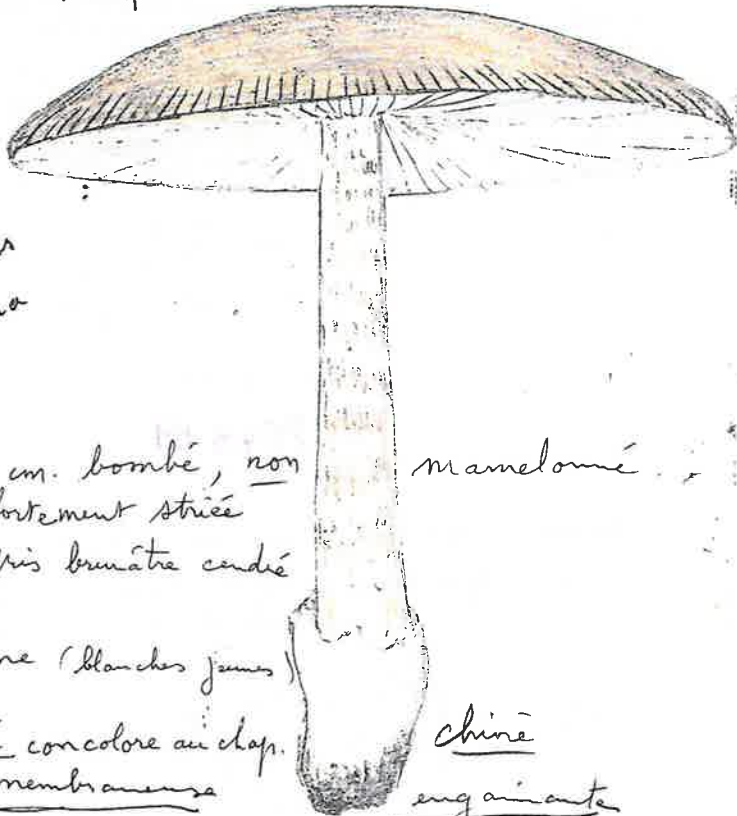 cm. bombé, non mamelonné
fortement striée
gris brunâtre cendré
(blanches jeunes)
concolore au chap. chiné
membraneuse engainante